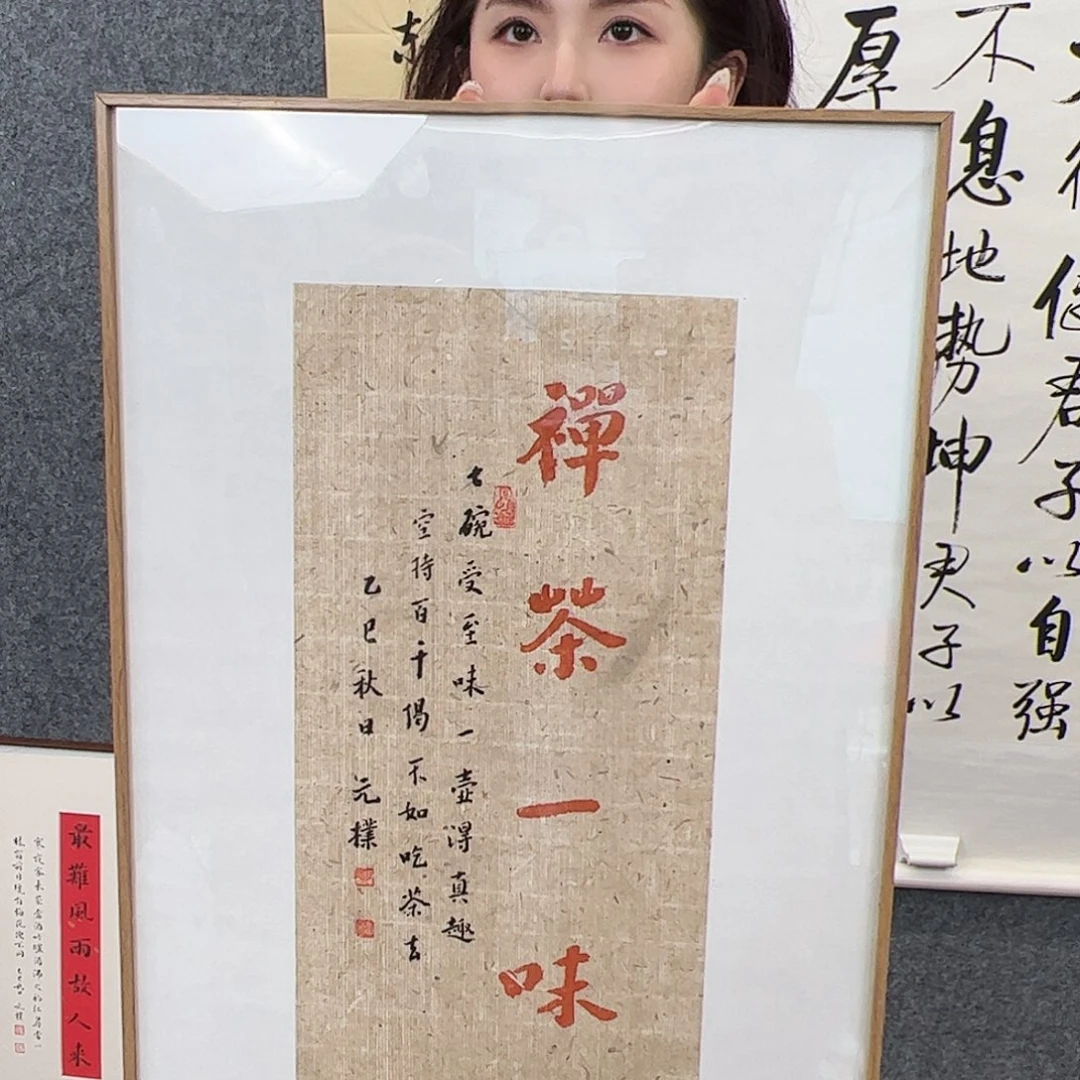 行健君子以自强
不息地势坤君子以
厚
东
禪茶一味
七碗受至味一壺得真趣
空持百千偈不如吃茶去
乙巳秋日元樸
最難風雨故人來